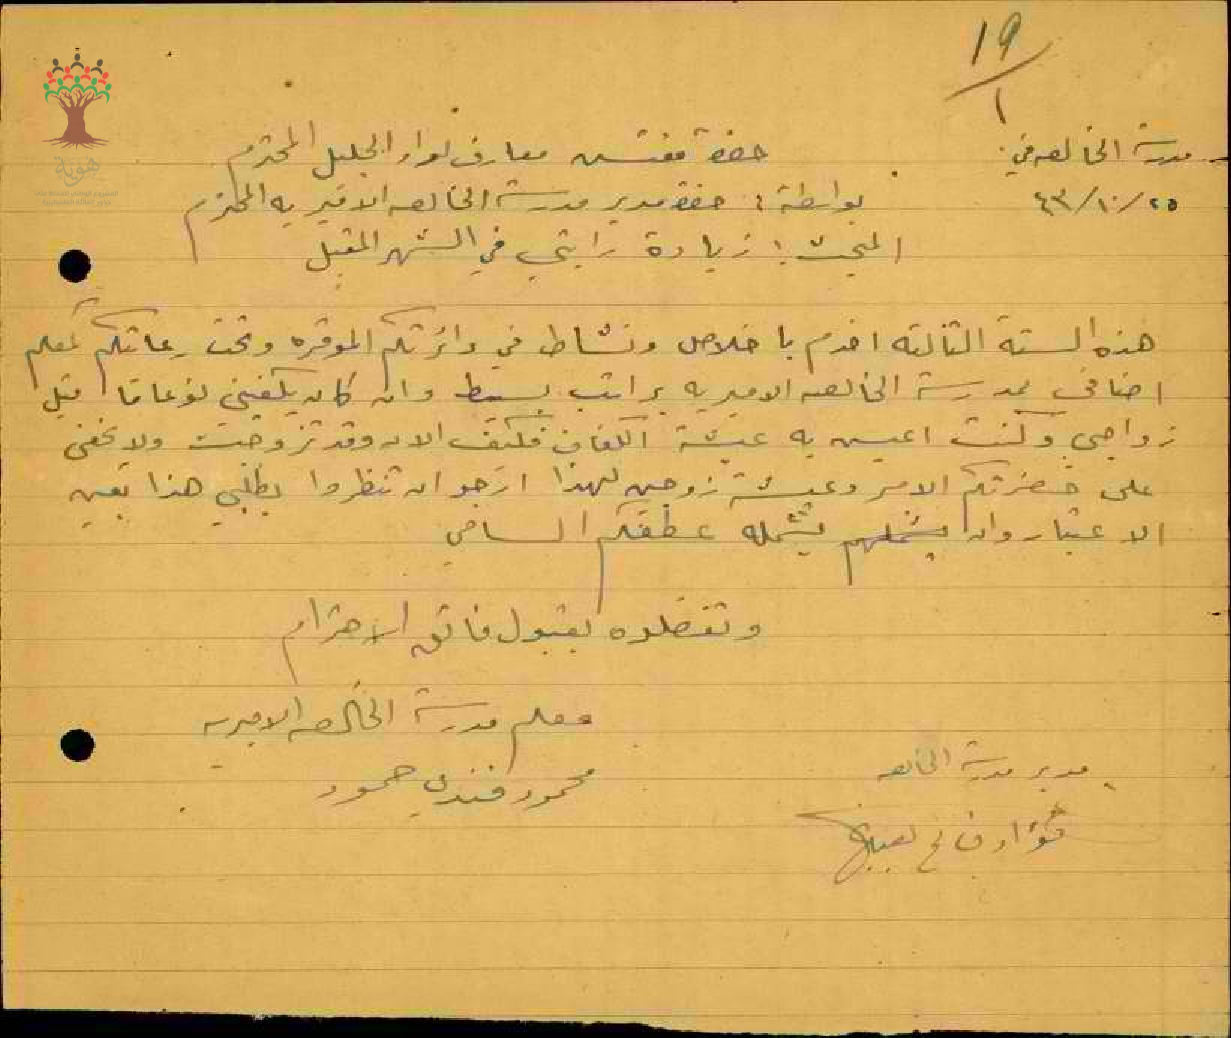 ١٩
١
مدرسة الخالصه في
٢٥/١٠/٤٣
حضرة مفتش معارف لواء الجليل المحترم
بواسطة : حضرة مدير مدرسة الخالصه الاميريه المحترم
المبحث : زيادة راتبي في الشهر المقبل
هذه السنة الثالثه اخدم باخلاص ونشاط في دائرتكم الموقره وتحت رعايتكم كمعلم
اضافي لمدرسة الخالصه الاميريه براتب بسيط وان كان يكفيني نوعا ما قبل
زواجي وكنت اعيش به عيشة الكفاف فكيف الان وقد تزوجت ولا يخفى
على حضرتكم الامر وعيشة زوجين لهذا ارجو ان تنظروا بطلبي هذا بعين
الاعتبار وان يشمله عطفكم السامي
وتفضلوا بقبول فائق الاحترام
معلم مدرسة الخالصه الاميريه
محمود فندي حمود
مدير مدرسة الخالصه
فؤاد
هوية